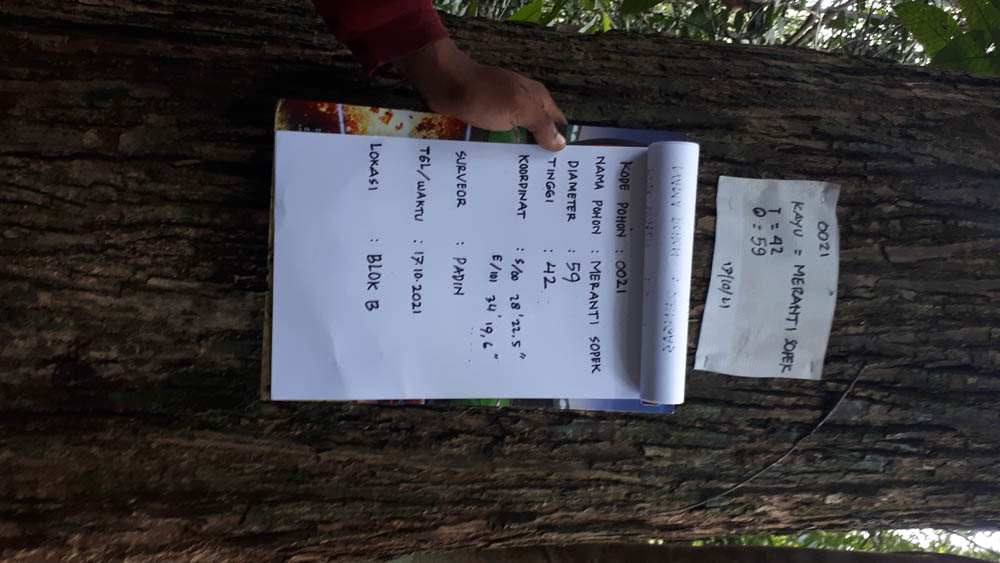 0021
KAYU = MERANTI SOPEK
T = 42
Q = 59
17/10/21
KODE POHON : 0021
NAMA POHON : MERANTI SOPEK
DIAMETER : 59
TINGGI : 42
KOORDINAT : S/00 28'22.5"
E/101 34'19,6"
SURVEOR : PADIN
TGL/WAKTU : 17.10.2021
LOKASI : BLOK B